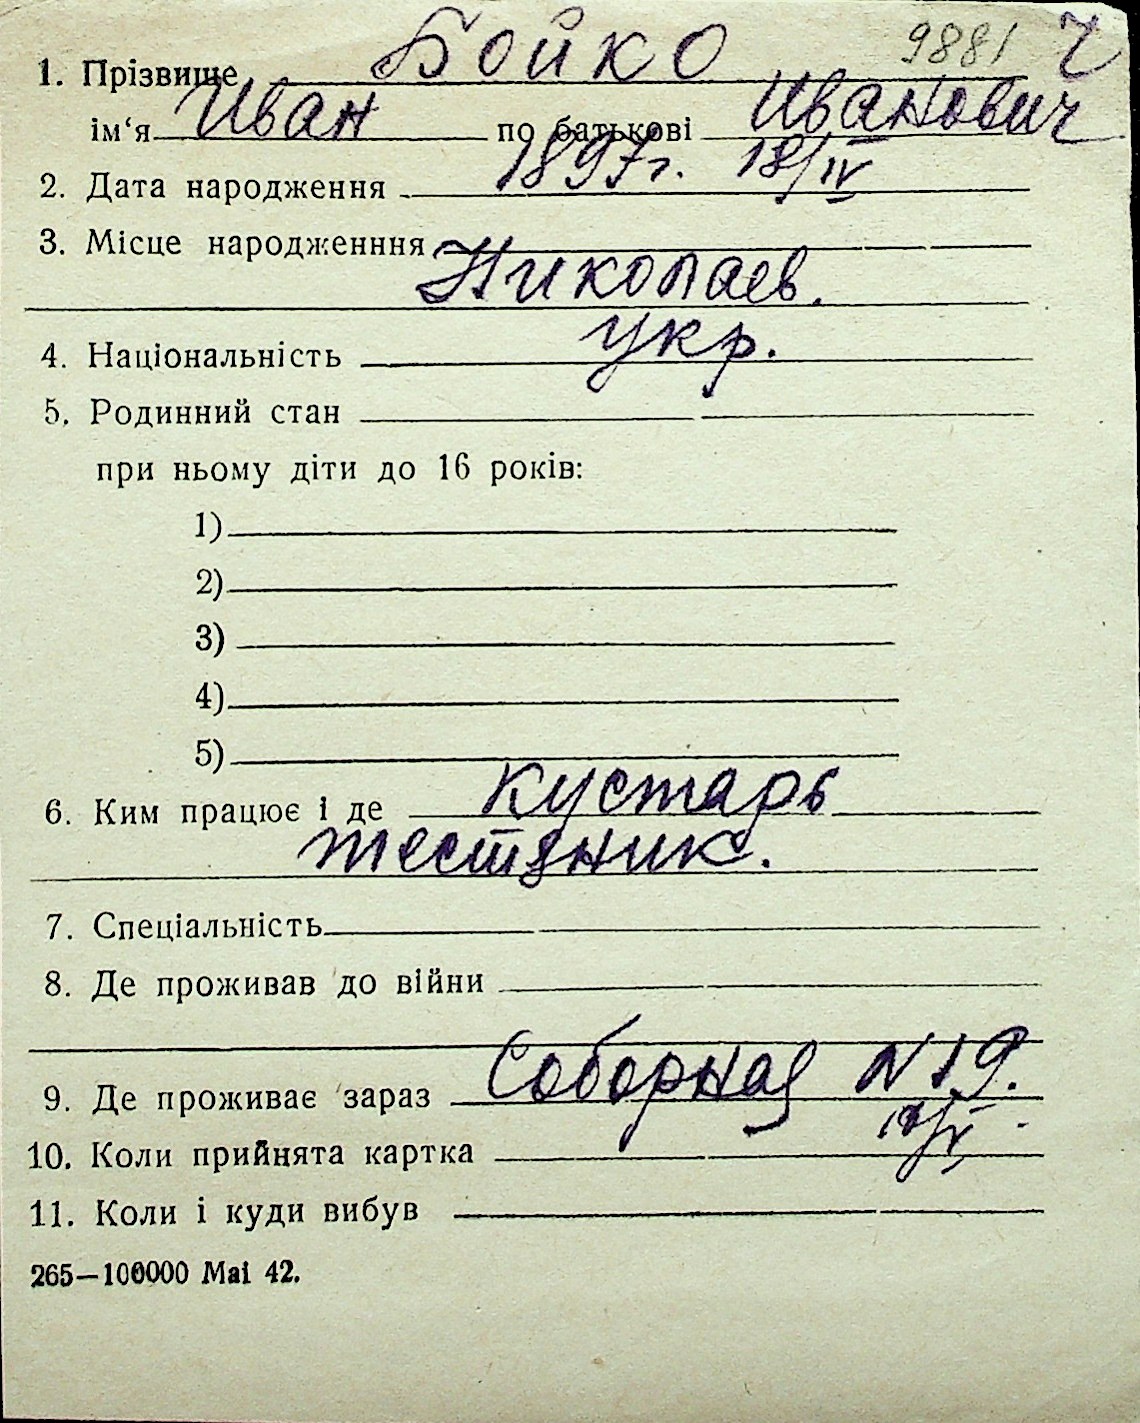 9881 Ч
1. Прізвище Бойко
ім‘я Иван по батькові Иванович
2. Дата народження 1897г. 18/IV
3. Місце народженння
Николаев.
4. Національність укр.
5. Родинний стан
при ньому діти до 16 років:
1)
2)
3)
4)
5)
6. Ким працює і де кустарь
жестяник.
7. Спеціальність
8. Де проживав до війни
9. Де проживає зараз Соборная N 19.
10. Коли прийнята картка
11. Коли і куди вибув
265—100000 Mai 42.